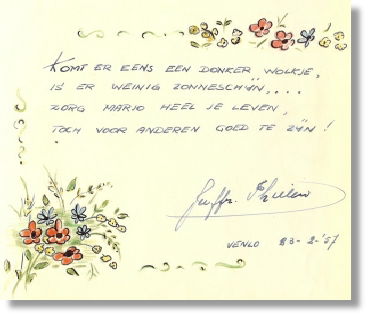 KOMT ER EENS EEN DONKER WOLKJE,
IS ER WEINIG ZONNESCHYN....
ZORG MARJO HEEL JE LEVEN,
TOCH VOOR ANDEREN GOED TE ZYN!
Juffr.
VENLO 23-2-'57